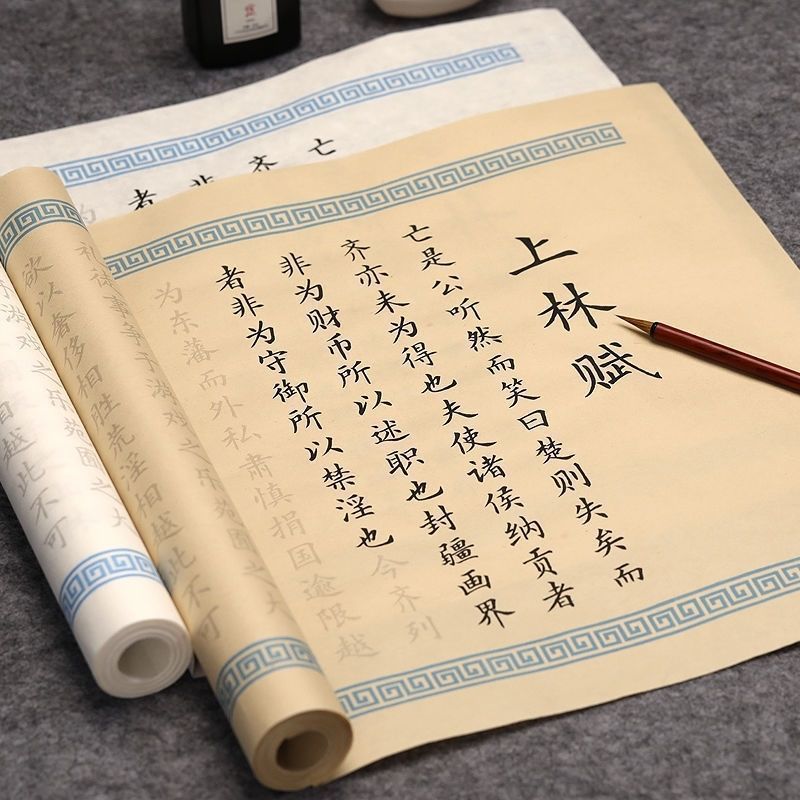 上林赋
亡是公听然而笑曰楚则失矣而
齐亦未为得也夫使诸侯纳贡者
非为财币所以述职也封疆画界
者非为守御所以禁淫也今齐列
为东藩而外私肃慎捐国逾限越
徒事争于游戏之乐苑囿之大
欲以奢侈相胜荒淫相越此不可
亡
齐
非
者
为
越此不可